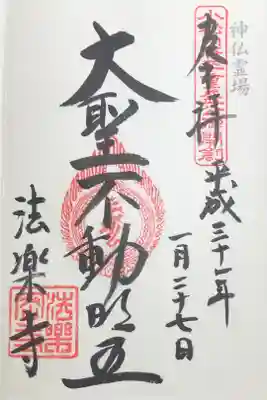 神仏霊場
奉拝 平成三十一年
一月二十七日
大聖不動明王
法楽寺